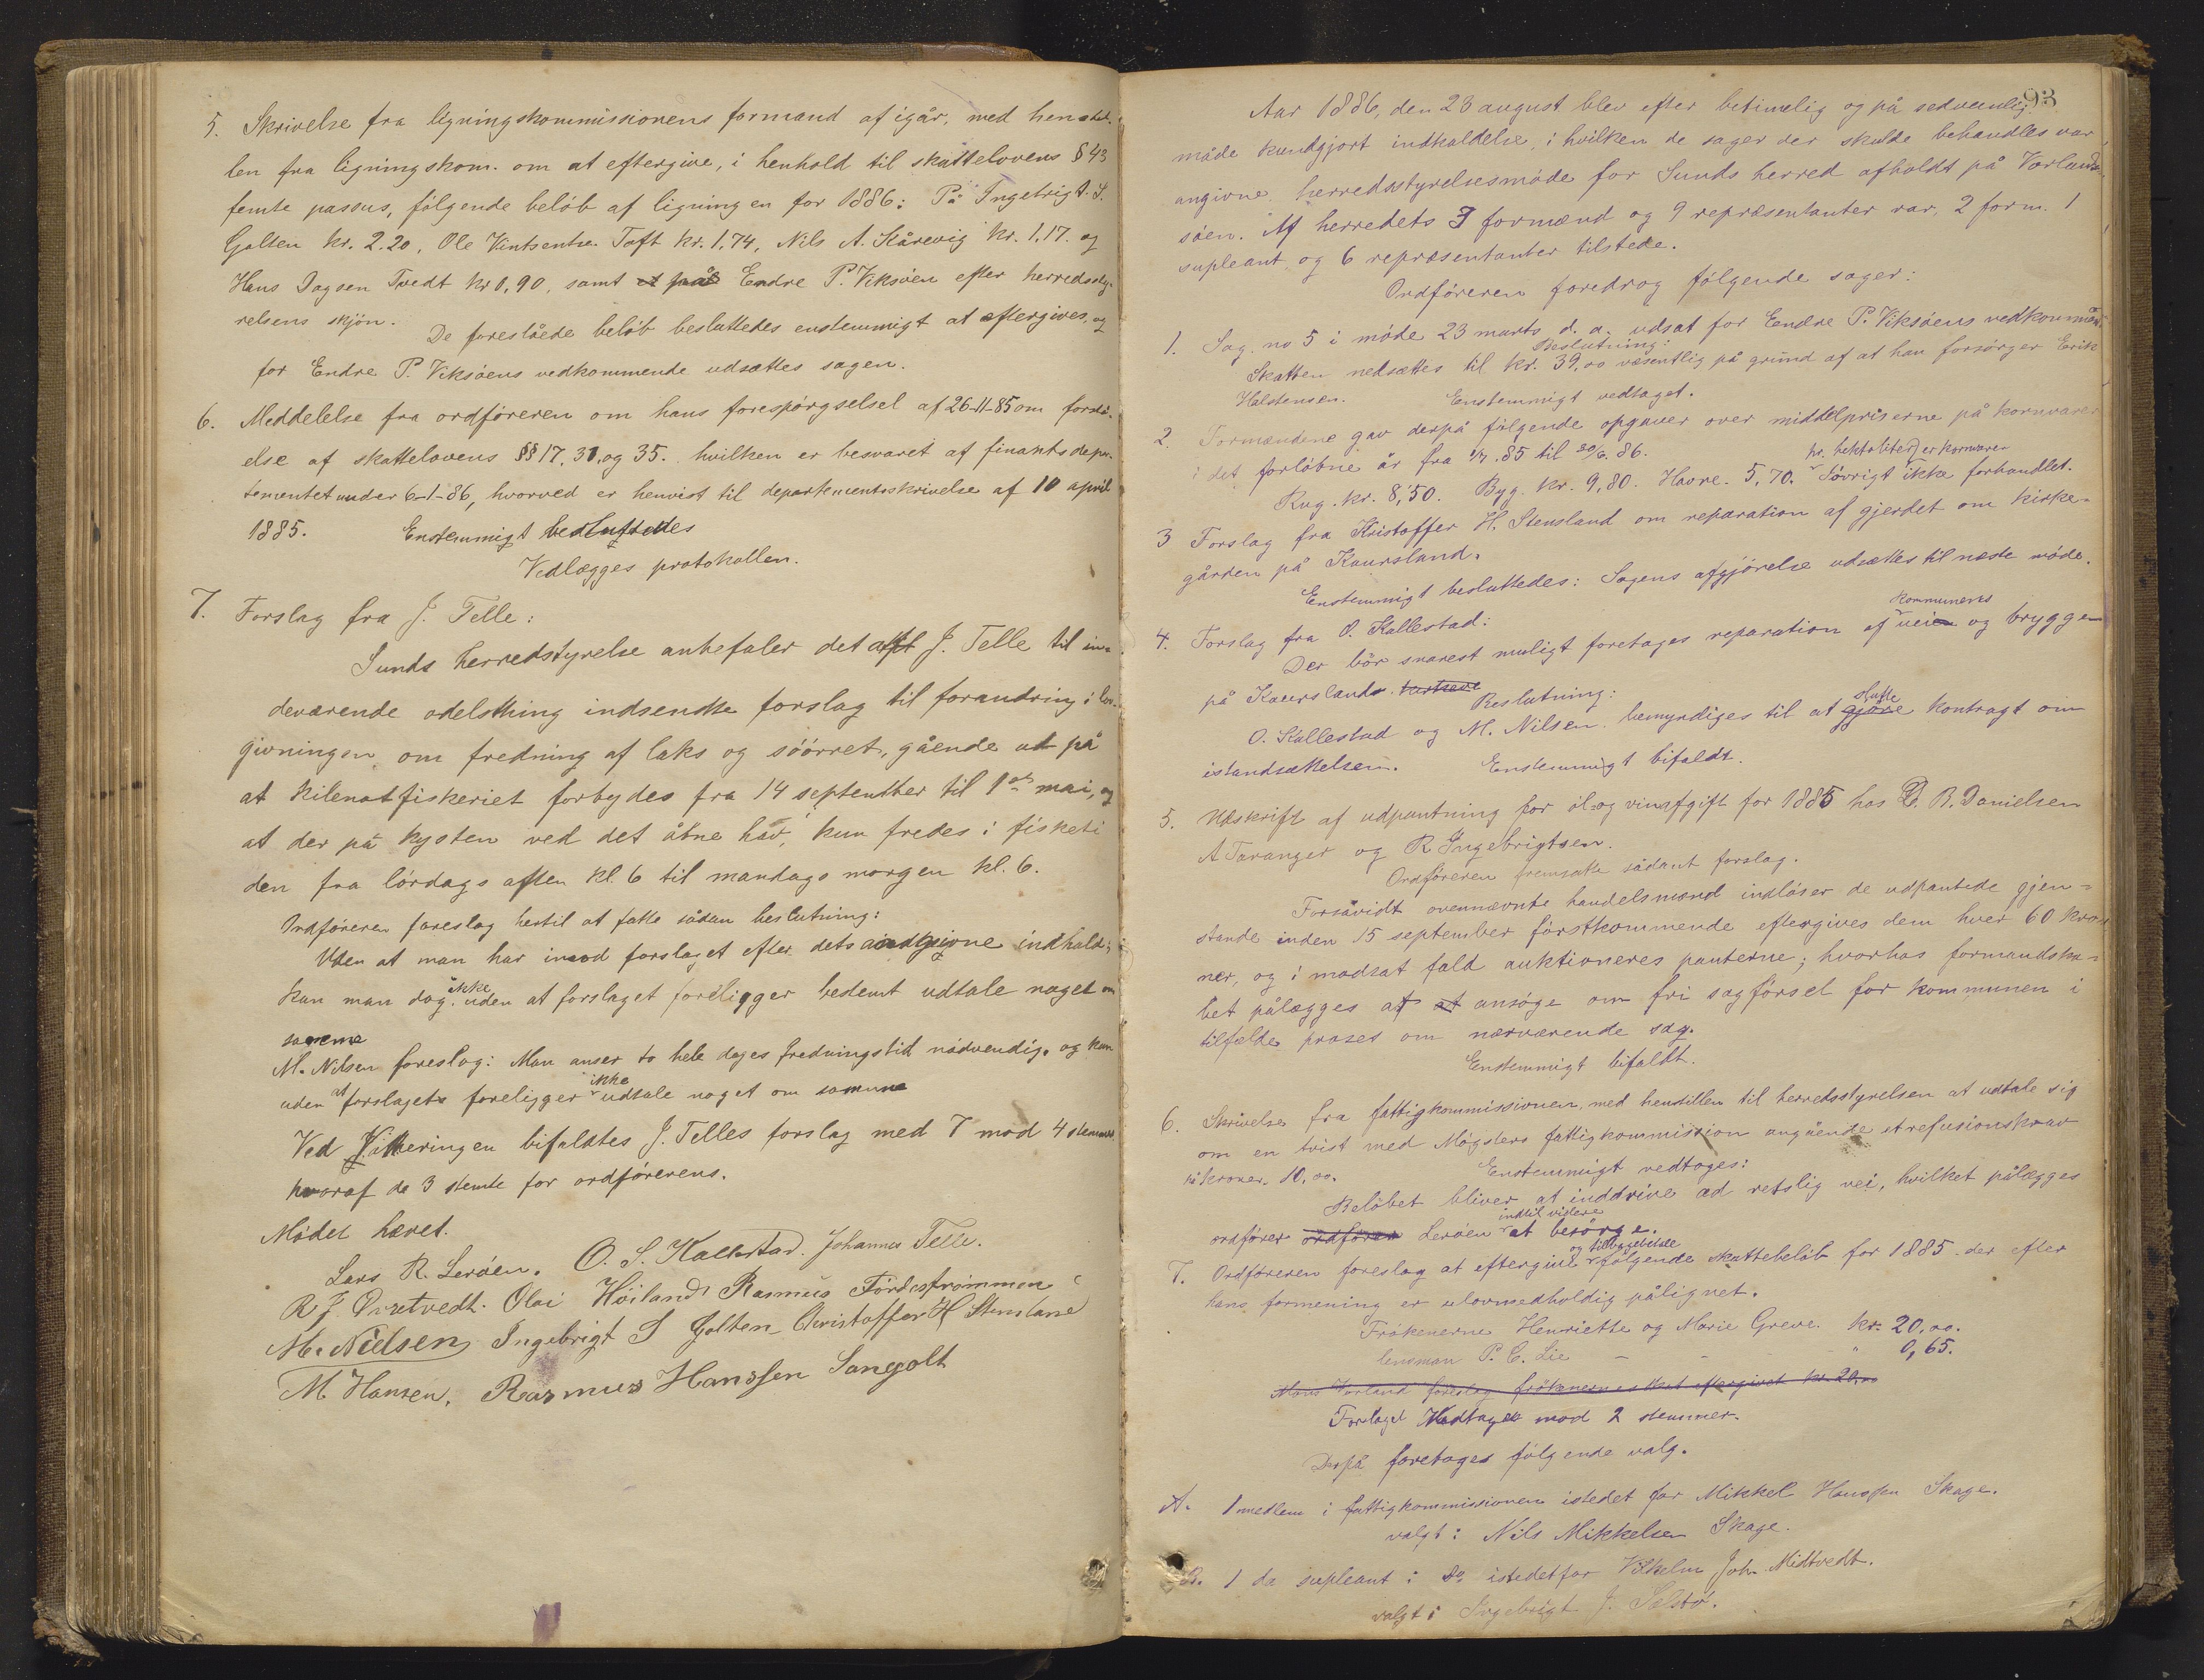 5. Skrivelse fra ligningskommissionens formand af igår, med henstil-
len fra ligningskom. om at eftergive, i henhold til skattelovens § 43
femte passus, fölgende belöb af ligningen for 1886: På Ingebrigt S.
Golten kr. 2.20, Ole Vintsentsen Toft kr. 1,74, Nils A. Kårevig kr. 1,17. og
Hans Dagsen Tvedt kr 0,90, samt at på Endre P. Viksöen efter herredssty-
relsens skjön.
De foreslåede belöb besluttedes enstemmigt at eftergives, og
for Endre P. Viksöens vedkommende udsættes sagen.
6. Meddelelse fra ordföreren om hans forespörgselsel af 26-11-85 om forstå-
else af skattelovens §§ 17, 31, og 35. hvilken er besvaret af finantsdepar-
tementet under 6-1-86, hvorved er henvist til departementsskrivelse af 10 april
1885. Enstemmigt besluttedes
Vedlægges protokollen.
7. Forslag fra J. Telle:
Sunds herredstyrelse anbefaler det af J. Telle til in-
deværende odelsthing indsendte forslag til forandring i lov-
givningen om fredning af laks og söörret, gående ud på
at kilenotfiskeriet forbydes fra 14 septemtber til 1ste mai, og
at der på kysten ved det åbne hav, kun fredes i fisketi
den fra lördags aften kl. 6 til mandags morgen kl. 6.
Ordföreren foreslog hertil at fatte sådan beslutning:
Uden at man har imod forslaget efter dets angivne indhold;
kan man dog ikke uden at forslaget foreligger bedemt udtale noget om
samme
M. Nilsen foreslog: Man anser to hele dages fredningstid nödvendig, og kan
uden at forslagets foreligger ikke udtale noget om samme
Ved Voteringen bifaldtes J. Telles forslag med 7 mod 4 stemmer
hvoraf de 3 stemte for ordförerens.
Mödet hævet.
Lars R. Leröen. O. S. Kallestad. Johannes Telle.
R J Tvetvedt. Olai Höiland Rasmus Fördestrømmen
M. Nielsen Ingebrigt S Golten Christoffer H Stensland
M Hansen. Rasmus Hanssen Sangolt
93
Aar 1886, den 23 august blev efter betimelig og på sedvanlig
måde kundgjort indkaldelse, i hvilken de sager der skulde behandles var
angivne, herredsstyrelsesmöde for Sunds herred afholdt på Vorlands-
söen. Af herredets 3 formænd og 9 repræsentanter var, 2 form. 1
supleant og 6 repræsentanter tilstede.
Ordföreren foredrog fölgende sager:
1. Sag. no 5 i möde 23 marts d. a. udsat for Endre P. Viksöens vedkommen
Beslutning:
Skatten nedsættes til kr. 39,00 væsentlig på grund af at han forsörger Erik
Halstensen. Enstemmigt vedtaget.
2. Formændene gav derpå fölgende opgaver over middelpriserne på kornvarer
i det forlöbne år fra 1/7.85 til 30/6.86.
pr. hektoliter er kornvarer
Rug. kr. 8,50. Byg. kr. 9,80. Havre. 5,70. Iövrigt ikke forhandlet.
3 Forslag fra Kristoffer H. Stensland om reparation af gjerdet om kirke-
gården på Kaursland.
Enstemmigt besluttedes: Sagens afgjörelse udsættes til næste möde.
4. Forslag fra O. Kallestad:
Der bör snarest muligt foretages reparation af kommunens veie og bryggen
på Kaurslands.
Beslutning:
O. Kallestad og M. Nilsen bemyndiges til at gjöre slutte kontragt om
istandsættelsen. Enstemmigt bifaldt.
5. Udskrift af udpantning for öl- og vinafgift for 1885 hos D. B. Danielsen
A Taranger og R Ingebrigtsen.
Ordföreren fremsatte sådant forslag.
Forsåvidt ovennævnte handelsmænd indlöser de udpantede gjen-
stande inden 15 september förstkommende eftergives dem hver 60 kro-
ner, og i modsat fald auktioneres panterne; hvorhos formandska-
bet pålægges at at ansöge om fri sagförsel for kommunen i
tilfælde prases om nærværende sag.
Enstemmigt bifaldt.
6. Skrivelse fra fattigkommissionen, med henstillen til herredsstyrelsen at udtale sig
om en tvist med Mögsters fattigkommission angående et refusionskrav
på kroner. 10,00. Enstemmigt vedtoges:
Belöbet bliver at inddrive ad retslig vei, hvilket pålægges
ordförer ordförer Leröen indtil videre at besörge.
7. Ordföreren foreslog at eftergive og tilbagebetale fölgende skattebelöb for 1885 der efter
hans formening er ulovmedholdig pålignet.
Frökenerne Henriette og Marie Greve. kr. 20,00.
lensman P. C. Lie - - - " 0,65.
Mons Vorland foreslog frökenernes skat eftergivet kr. 20,00
Forslaget Vedtages mod 2 stemmer.
Derpå foretoges fölgende valg.
A. 1 medlem i fattigkommissionen istedet for Mikkel Hanssen Skage.
valgt: Nils Mikkelsen Skage.
B. 1 do supleant i do istedetfor Vilhelm Joh. Midtvedt.
valgt: Ingebrigt J. Selstö.